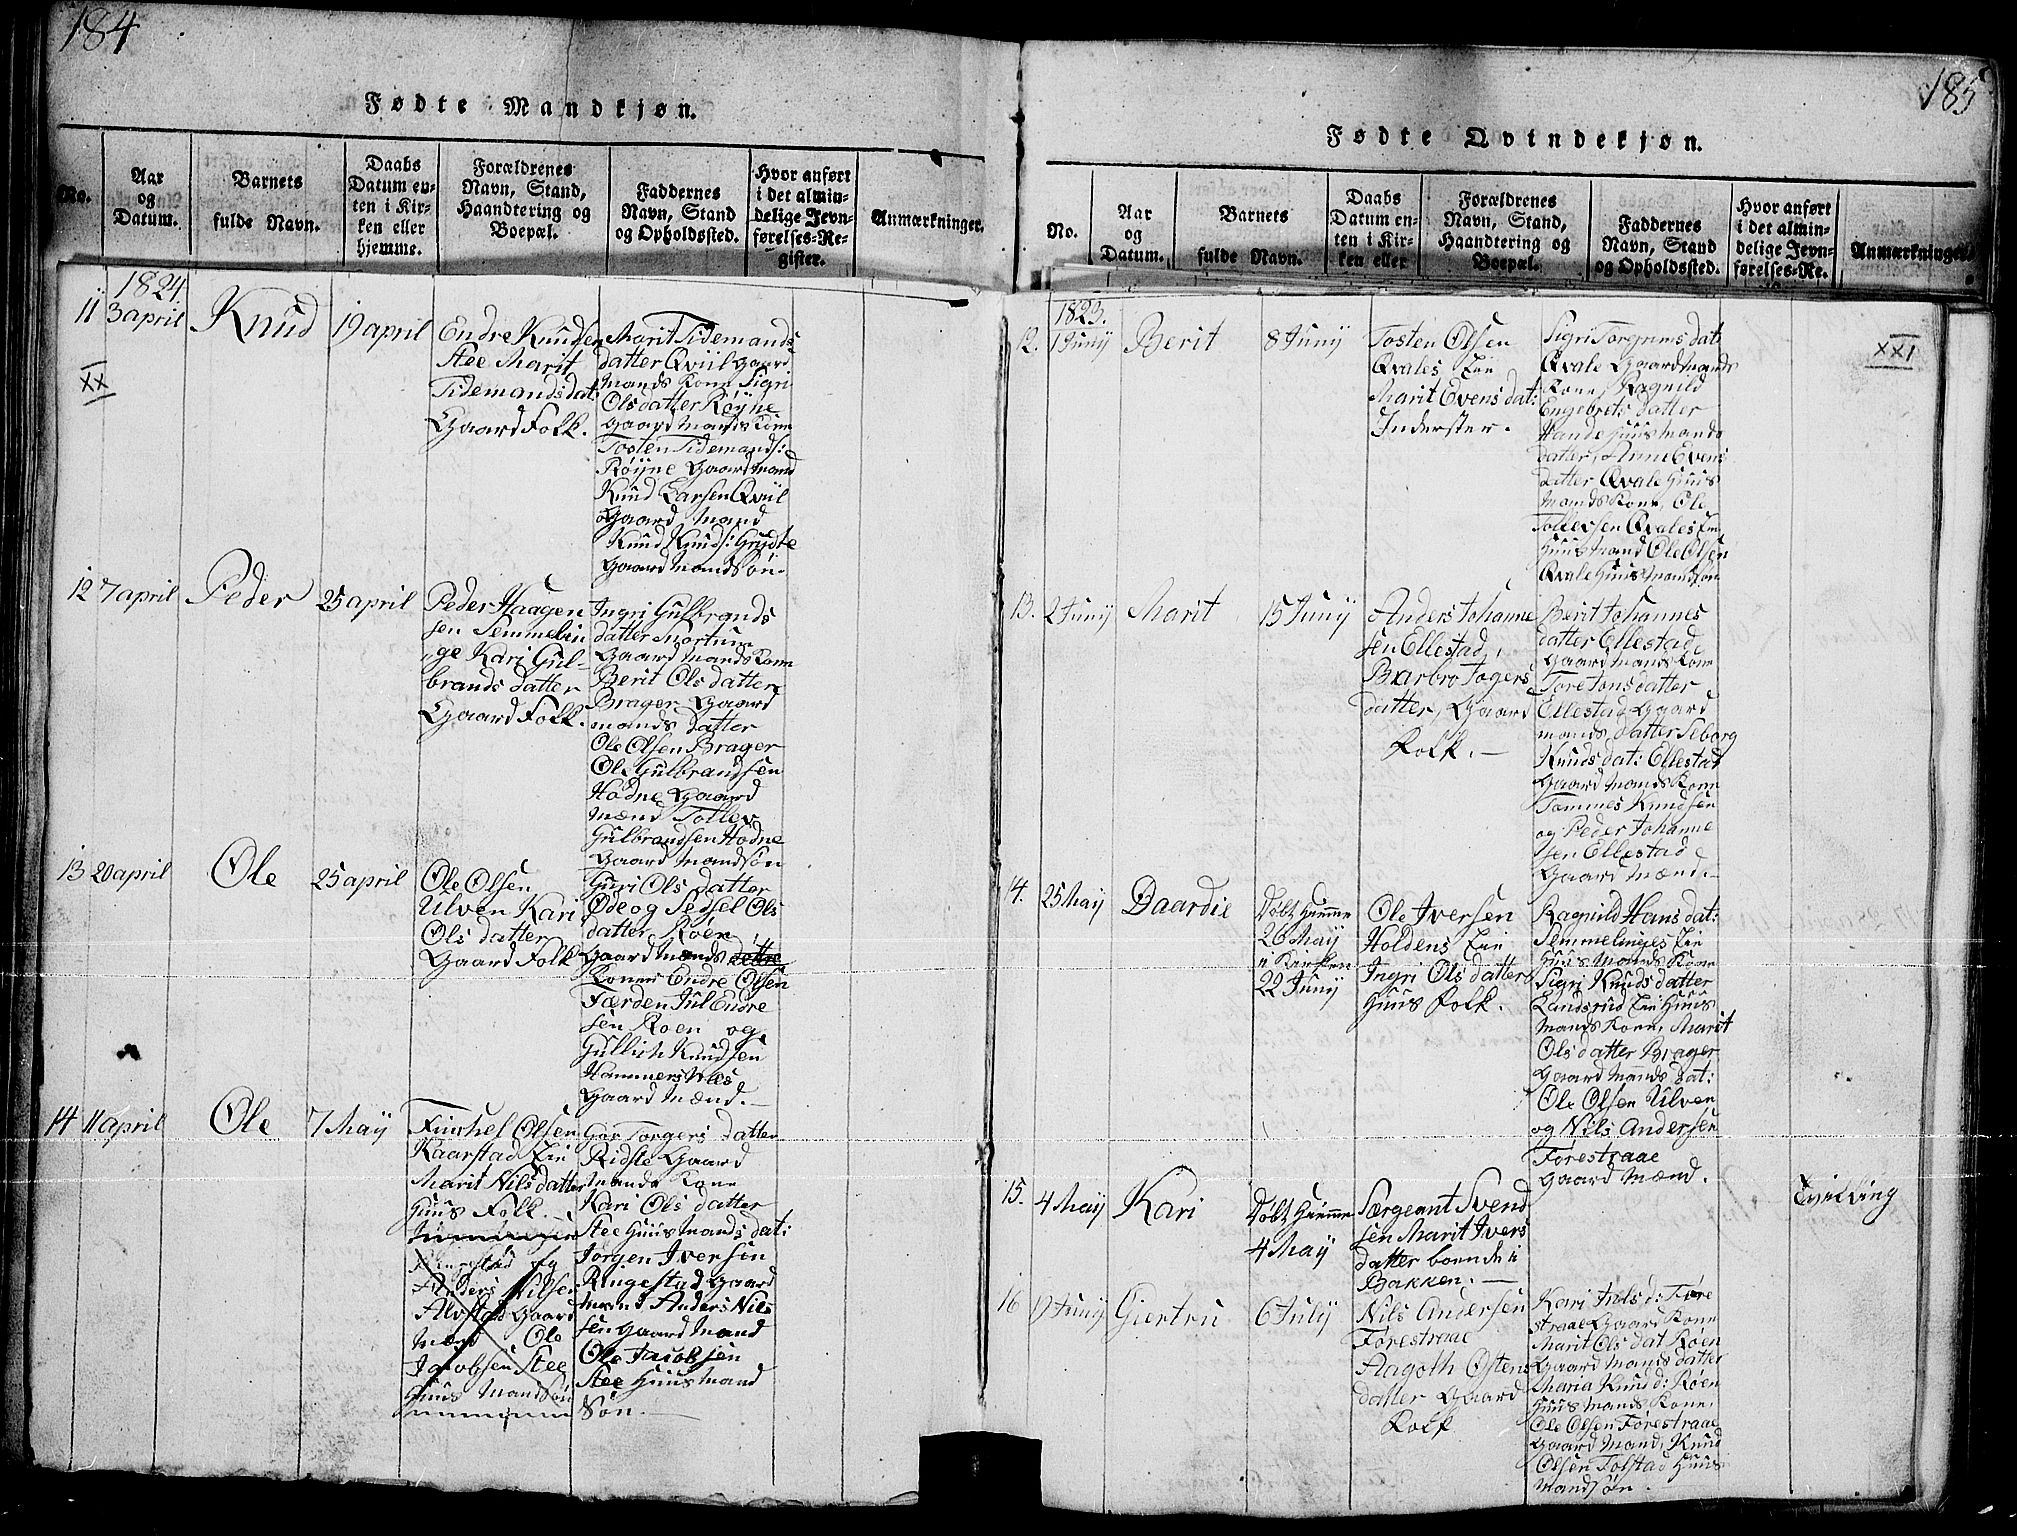 184
Fødte Mandkjøn.
No.
Aar
og
Datum.
Barnets
fulde Navn.
Daabs
Datum en-
ten i Kir-
ken eller
hjemme.
Forældrenes
Navn, Stand,
Haandtering og
Boepæl.
Faddernes
Navn, Stand
og Opholdssted.
Hvor anført
i det almin-
delige Jevn-
førelses-Re-
gister.
Anmærkninger.
1824.
11 3 april
Knud
19 april
Endre Knudsen
Stee Marit
Tidemandsdat:
Gaard Folk.
Marit Tidemands
datter Qviil Gaard
Mands Kone Sigri
Olsdatter Røyne
Gaard Mands Kone
Tosten Tidemands:
Røyne Gaard Mand
Knud Larsen Qviil
Gaard Mand
Knud Knuds: Grydte
Gaard Mandsøn.
XX
12 7 april
Peder
25 april
Peder Haagen
sen Semmelin
ge Kari Gul-
brands datter
Gaard Folk.
Ingri Gulbrands
datter Mortun
Gaard Mands Kone
Berit Ols datter
Brager Gaard
mands datter
Ole Olsen Brager
Ole Gulbrandsen
Hodne Gaard
Mænd Tollev
Gulbrandsen Hodne
Gaard Mandsøn
13 20 april
Ole
25 april
Ole Olsen
Ulven Kari
Ols datter
Gaard Folk
Guri Ols datter
Øde og Sedsel Ols
datter Roen
Gaard Mands
Koner Endre Olsen
Færden Jul Endre
sen Roen og
Gullich Knudsen
Hammersnæs
Gaard Mænd.
14 11 april
Ole
7 May
Olsen
Kaarstad Eie
Marit Nils datter
Huus Folk.
og
Anders Nilsen
Alvstad Gaard
Mænd Ole
Jacobsen Stee
Huus Mandsøn
Gør Torgers datter
Ridste Gaard
Mands Kone
Kari Ols datter
Stee Huus Mands dat:
Jørgen Iversen
Ringestad Gaard
mand Anders Nils
sen Gaard Mand
Ole Jacobsen
Stee Huusmand
Søn.
185
Fødte Qvindekjøn.
No.
Aar
og
Datum.
Barnets
fulde Navn.
Daabs
Datum en-
ten i Kir-
ken eller
Forældrenes
Navn, Stand,
Haandtering og
Boepæl.
Faddernes
Navn, Stand
og Opholdssted.
Hvor anført
i det almin-
delige Jevn-
førelses-Re-
Anmærkninger.
1823.
12. 1 Juny
Berit
8 Juny
Tosten Olsen
Qvales Eie
Marit Evensdat:
Inderster.
Sigri Torgrims dat:
Qvale Gaard Mands
Kone, Ragnild
Engebrets datter
Hande Huus Mands
datter, Anne Evens
datter Qvale Huus
Mands Kone, Ole
Tollevsen Qvales Eie
Huus Mand Ole Olsen
Qvale Huus Mandsøn
XXI
13. 2 Juny
Marit
15 Juny
Anders Johanne
sen Ellestad,
Barbro Jogers
datter, Gaard
Folk.
Berit Johannes
datter Ellestad
Gaard Mands Kone
Tore Jonsdatter
Ellestad Gaard
mands, datter Seborg
Knuds dat: Ellestad
Gaard Mands Kone
Tommes Knudsen
og Peder Johanne
sen Ellestad
Gaard Mænd.
14. 25 May
Daardie
Døbt Hiemme
26 May
i Kirken
22 Juny
Ole Iversen
Holdens Eie
Ingri Ols datter
Huus Folk.
Ragnild Hans dat:
Semmelinges Eie
Huus Mands Kone
Sigri Knuds datter
Landsrud Eie Huus
Mands Kone, Marit
Ols datter Brager
Gaard Mands dat:
Ole Olsen Ulven
og Nils Andersen
Førestraae
Gaard Mænd.
15. 4 May
Kari
Døbt Hiemme
4 May
Særgeant Svend
sen Marit Ivers
datter boende i
Bakken.
Tvilling
16 17 Juny
Giertru
6 July
Nils Andersen
Førestraae
Aagoth Østens
datter Gaard
Folk
Kari Juls d: Føre
straae Gaard Kone
Marit Ols dat Røen
Gaard Mands datter
Maria Knud d: Røen
Huus Mands Kone,
Ole Olsen Førestraae
Gaard Mand, Knud
Olsen Tolstad Huus
Mandsøn.